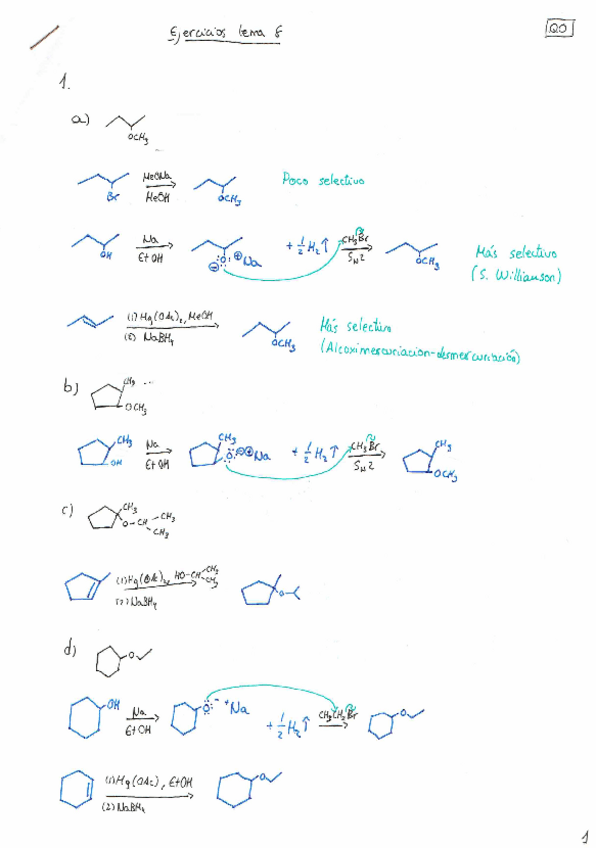 Ejercicios tema 8
QO
1.
a)
OCH3
Br MeONa MeOH OCH3 Poco selectivo
OH Na EtOH O Na + 1/2 H2 ↑ CH3Br SN2 OCH3 Más selectivo
(S. Williamson)
(1) Hg(OAc)2, MeOH
(2) NaBH4
OCH3 Más selectivo
(Alcoximercuriación-desmercuriación)
b) CH3
OCH3
CH3 OH Na EtOH CH3 O Na + 1/2 H2 ↑ CH3Br SN2 CH3 OCH3
c) CH3
O-CH CH3 CH3
(1) Hg(OAc)2, HO-CH CH3 CH3
(2) NaBH4
O
d) O
OH Na EtOH O - + Na + 1/2 H2 ↑ CH3CH2Br O
(1) Hg(OAc), EtOH
(2) NaBH4
O
1